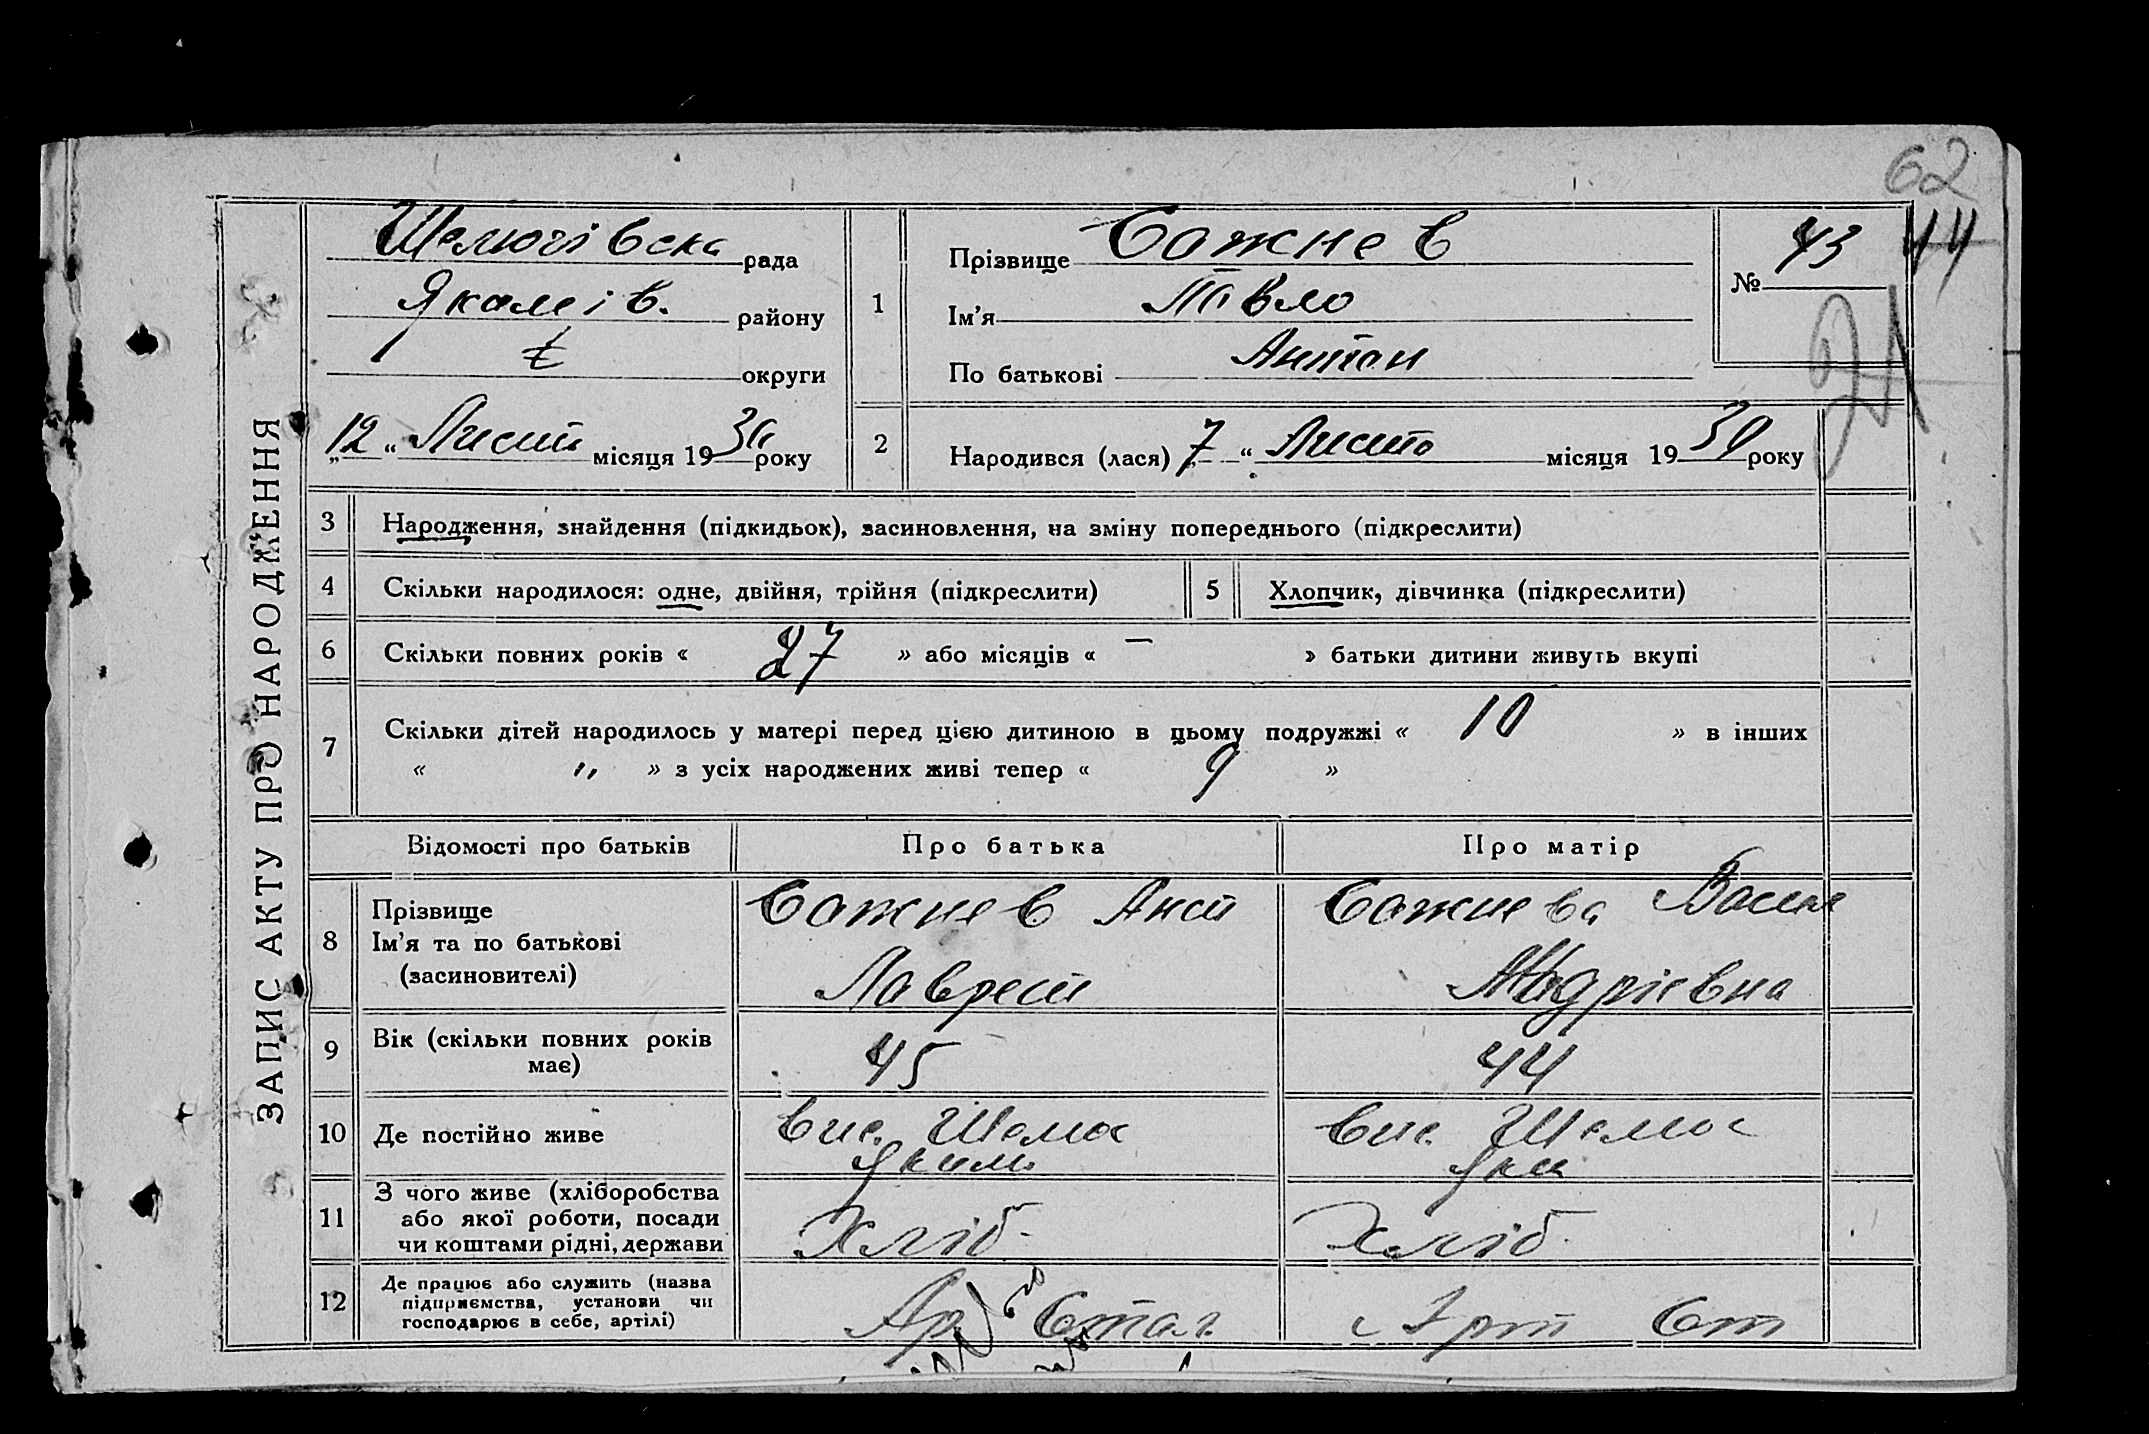 62
рада
Прізвище Сажнев
№ 43
44
Якимів. району
1
Ім'я Павло
21
округи
По батькові Антон
„12“ Лист місяця 1930 року
2
Народився (лася) „7“ Листо місяця 1930 року
ЗАПИС АКТУ ПРО НАРОДЖЕННЯ
3 Народження, знайдення (підкидьок), засиновлення, на зміну попереднього (підкреслити)
4 Скільки народилося: одне, двійня, трійня (підкреслити) 5 Хлопчик, дівчинка (підкреслити)
6 Скільки повних років « 27 » або місяців « — » батьки дитини живуть вкупі
7 Скільки дітей народилось у матері перед цією дитиною в цьому подружжі « 10 » в інших
« „ » з усіх народжених живі тепер « 9 »
Відомості про батьків Про батька Про матір
8 Прізвище
Ім'я та по батькові
(засиновителі)
Сажнев Ант
Лаврент
Сажнева
9 Вік (скільки повних років
має)
45 44
10 Де постійно живе
вис.
Яким.
вис.
Яки
11 З чого живе (хліборобства
або якої роботи, посади
чи коштами рідні, держави
Хліб. Хліб.
12 Де працює або служить (назва
підприємства, установи чи
господарює в себе, артілі)
Сталі
Арт Ст